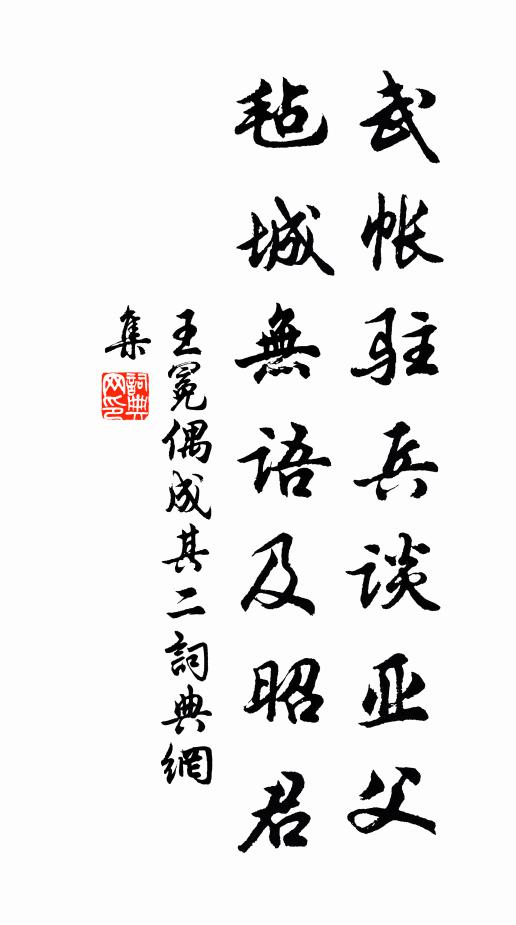 武帐驻兵谈亚父
毡城無语及昭君
王冕偶成其二詞典網
集
詞典网印